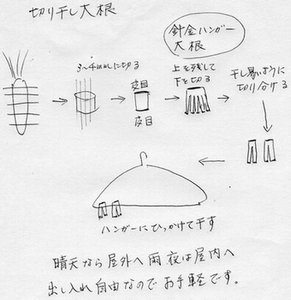 切り干し大根
針金ハンガー
大根
3〜4cmに切る
皮目
皮目
上を残して
下を切る
干し易いように
切り分ける
ハンガーにひっかけて干す
晴天なら屋外へ雨夜は屋内へ
出し入れ自由なのでお手軽です。